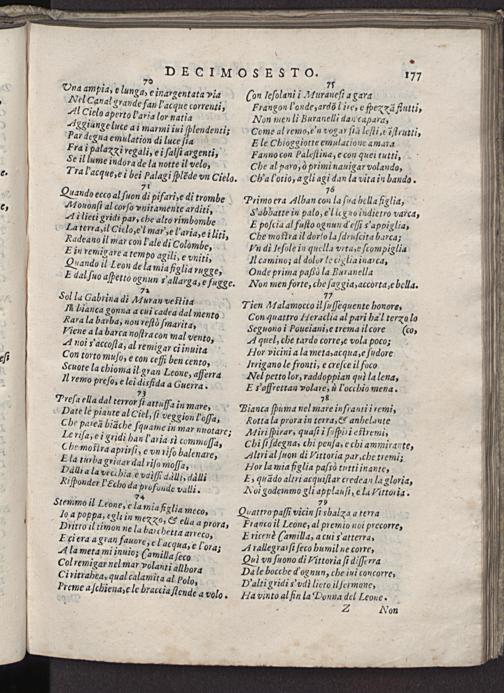 DECIMOSESTO. 177
70
Vna ampia, e lunga, e inargentata via
Nel Canal grande fan l'acque correnti,
Al Cielo aperto l'aria lor natia
Aggiunge luce a i marmi iui splendenti;
Par degna emulation di luce sia
Fra i palazzi regali, e i salsi argenti,
Se il lume indora de la notte il velo,
Tra l'acque, e i bei Palagi splēde vn Cielo.
71
Quando ecco al suon di pifari, e di trombe
Mouonsi al corso vnitamente arditi,
A i lieti gridi par, che alto rimbombe
La terra, il Cielo, e'l mar, e l'aria, e i liti,
Radeano il mar con l'ale di Colombe,
E in remigare a tempo agili, e vniti,
Quando il Leon de la mia figlia rugge,
E dal suo aspetto ognun s'allarga, e fugge.
72
Sol la Gabrina di Muran vestita
In bianca gonna a cui cadea dal mento
Rara la barba, non restò smarita,
Viene a la barca nostra con mal vento,
A noi s'accosta, al remigar ci inuita
Con torto muso, e con cessi ben cento,
Scuote la chioma il gran Leone, afferra
Il remo preso, e lei disfida a Guerra.
73
Presa ella dal terror si attuffa in mare,
Date le piante al Ciel, si veggion l'ossa,
Che pareā biāche squame in mar nuotare;
Le risa, e i gridi han l'aria sì commossa,
Che mostra aprirsi, e vn riso balenare,
E la turba gridar dal riso mossa,
Dàlli a la vecchia e daissi dàlli, dàlli
Risponder l'Echo da profonde valli.
74
Stemmo il Leone, e la mia figlia meco,
Io a poppa, egli in mezzo, & ella a prora,
Dritto il timon ne la barchetta arreco,
E ci era a gran fauore, e l'acqua, e l'ora;
A la meta mi inuio; Camilla seco
Col remigar nel mar volanti allhora
Ci ritrahea, qual calamita al Polo,
Preme a schiena, e le braccia stende a volo.
75
Con Iesolani i Muranesi a gara
Frangon l'onde, ardō l'ire, e spezzā flutti,
Non men li Buranelli dan capara,
Come al remo, e'n vogar siā lesti, e istrutti,
E le Chioggiotte emulatione amara
Fanno con Palestina, e con quei tutti,
Che al paro, ò primi nauigar volando,
Ch'a l'otio, a gli agi dan la vita in bando.
76
Primo era Alban con la sua bella figlia,
S'abbatte in palo, e'l legno indietro varca,
E poscia al fusto ognun d'essi s'appiglia,
Che mostra il dorso la sdruscita barca;
Vn di Iesole in quella vrta, e scompiglia
Il camino; al dolor le ciglia inarca,
Onde prima passò la Buranella
Non men forte, che saggia, accorta, e bella.
77
Tien Malamocco il sussequente honore,
Con quattro Heraclia al pari ha'l terzo lo
Seguono i Poueiani, e trema il core (co,
A quel, che tardo corre, e vola poco;
Hor vicini a la meta, acqua, e sudore
Irrigano le fronti, e cresce il foco
Nel petto lor, raddoppian quì la lena,
E s'affrettan volare, ù l'occhio mena.
78
Bianca spuma nel mare infranti i remi,
Rotta la prora in terra, & anhelante
Miri spirar, quasi i sospiri estremi,
Chi si sdegna, chi pensa, e chi ammirante,
Altri al suon di Vittoria par, che tremi;
Hor la mia figlia passò tutti inante,
E, quādo altri acquistar credean la gloria,
Noi godemmo gli applausi, e la Vittoria.
79
Quattro passi vicin si sbalza a terra
Franco il Leone, al premio noi precorre,
E riceuè Camilla, a cui s'atterra,
A rallegrarsi seco humil ne corre,
Quì vn suono di Vittoria si disserra
Da le bocche d'ognun, che iui concorre,
D'alti gridi s'vdì lieto il sermone,
Ha vinto al fin la Donna del Leone.
Z Non